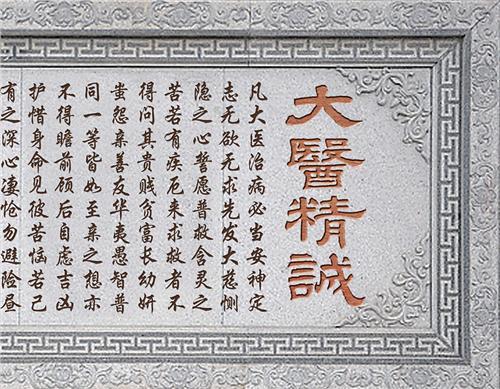 大醫精誠
凡大医治病必当安神定
志无欲无求先发大慈恻
隐之心誓愿普救含灵之
苦若有疾厄来求救者不
得问其贵贱贫富长幼妍
蚩怨亲善友华夷愚智普
同一等皆如至亲之想亦
不得瞻前顾后自虑吉凶
护惜身命见彼苦恼若己
有之深心凄怆勿避险昼